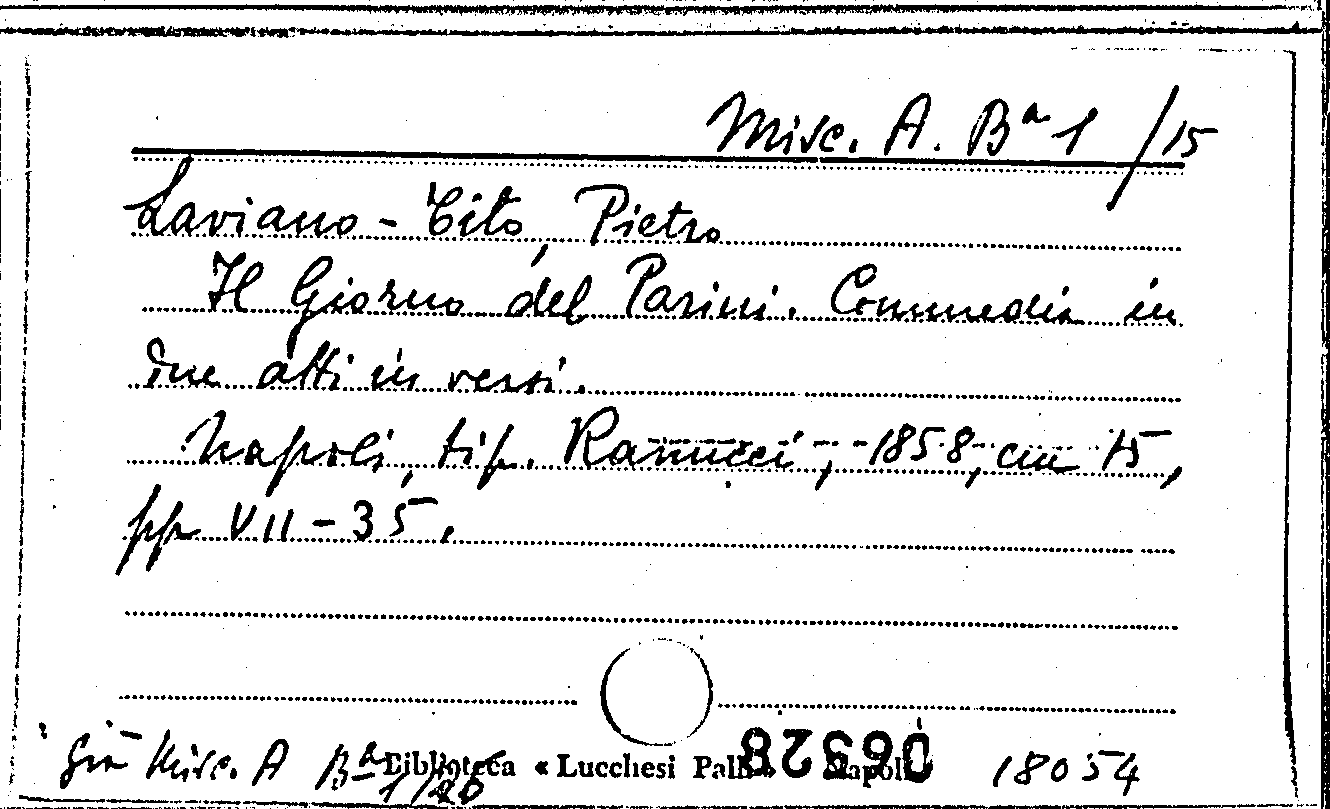 Misc. A. Bª 1 /15
Laviano-Tito, Pietro
Il Giorno del Parini. Commedia in
due atti in versi.
Napoli, tip. Ranucci, 1858, cm 15,
pp VII-35.
già Misc. A Bª 1/26
Biblioteca « Lucchesi Palli » Napoli
06328
18054